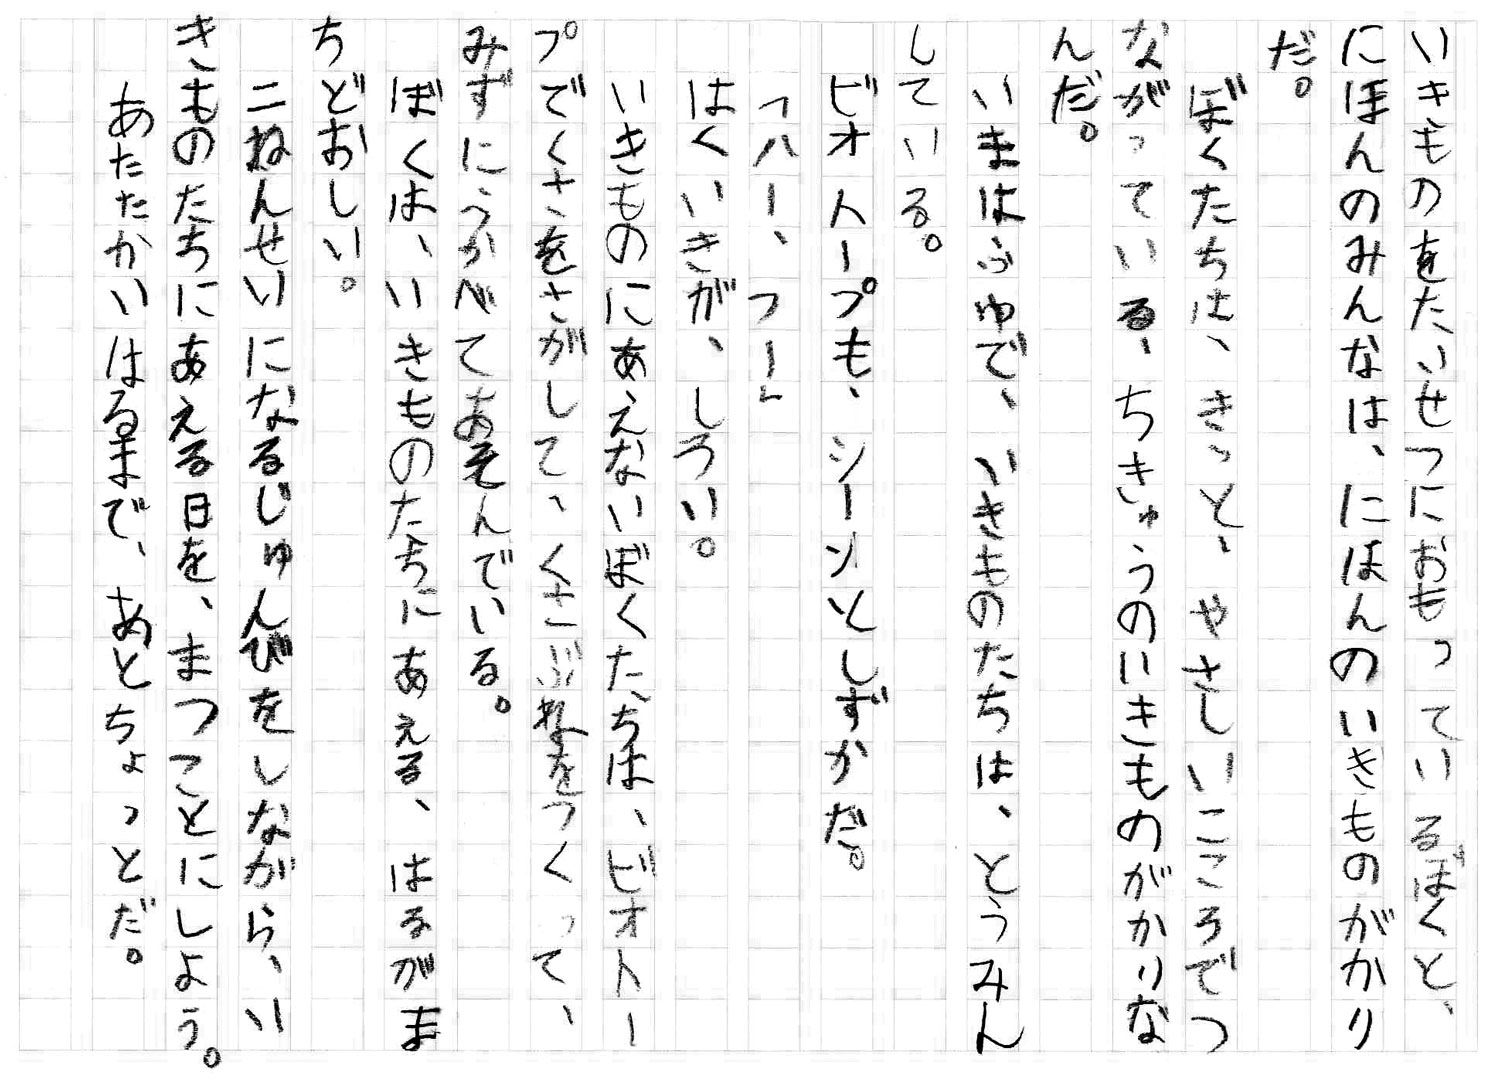 いきものをたいせつにおもっているぼくと、
にほんのみんなは、にほんのいきものがかり
だ。
ぼくたちは、きっと、やさしいこころでつ
ながっている、ちきゅうのいきものがかりな
んだ。
いまはふゆで、いきものたちは、とうみん
している。
ビオトープも、シーンとしずかだ。
「ハー、フー」
はくいきが、しろい。
いきものにあえないぼくたちは、ビオトー
プでくさをさがして、くさぶえをつくって、
みずにうかべてあそんでいる。
ぼくは、いきものたちにあえる、はるがま
ちどおしい。
二ねんせいになるじゅんびをしながら、い
きものたちにあえる日を、まつことにしよう。
あたたかいはるまで、あとちょっとだ。